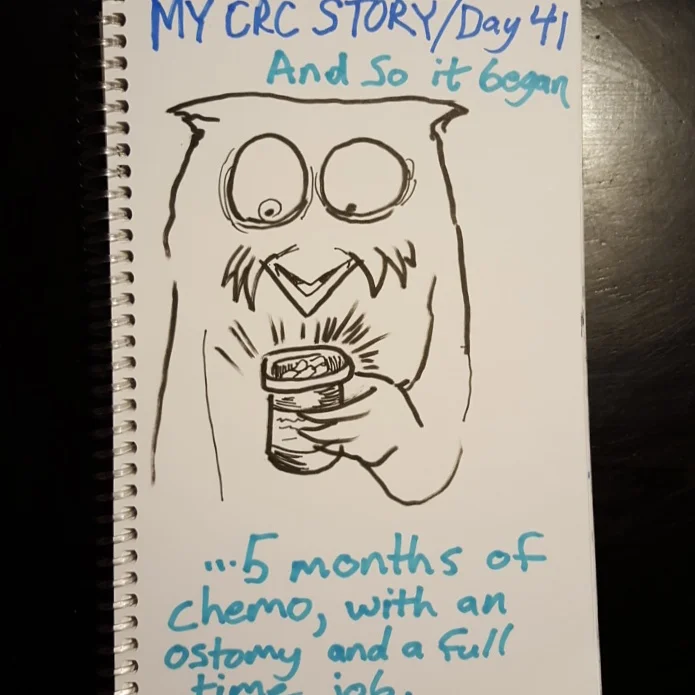 MY CRC STORY/Day 41
And So it began
...5 months of
chemo, with an
ostomy and a full
time job.